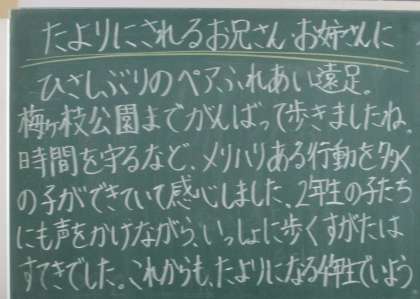 たよりにされるお兄さんお姉さんに
ひさしぶりのペアふれあい遠足。
梅ヶ枝公園までがんばって歩きましたね。
時間を守るなど、メリハリある行動を多く
の子ができていて感心しました。2年生の子たち
にも声をかけながら、いっしょに歩くすがたは
すてきでした。これからも、たよりになる4年生でいよう